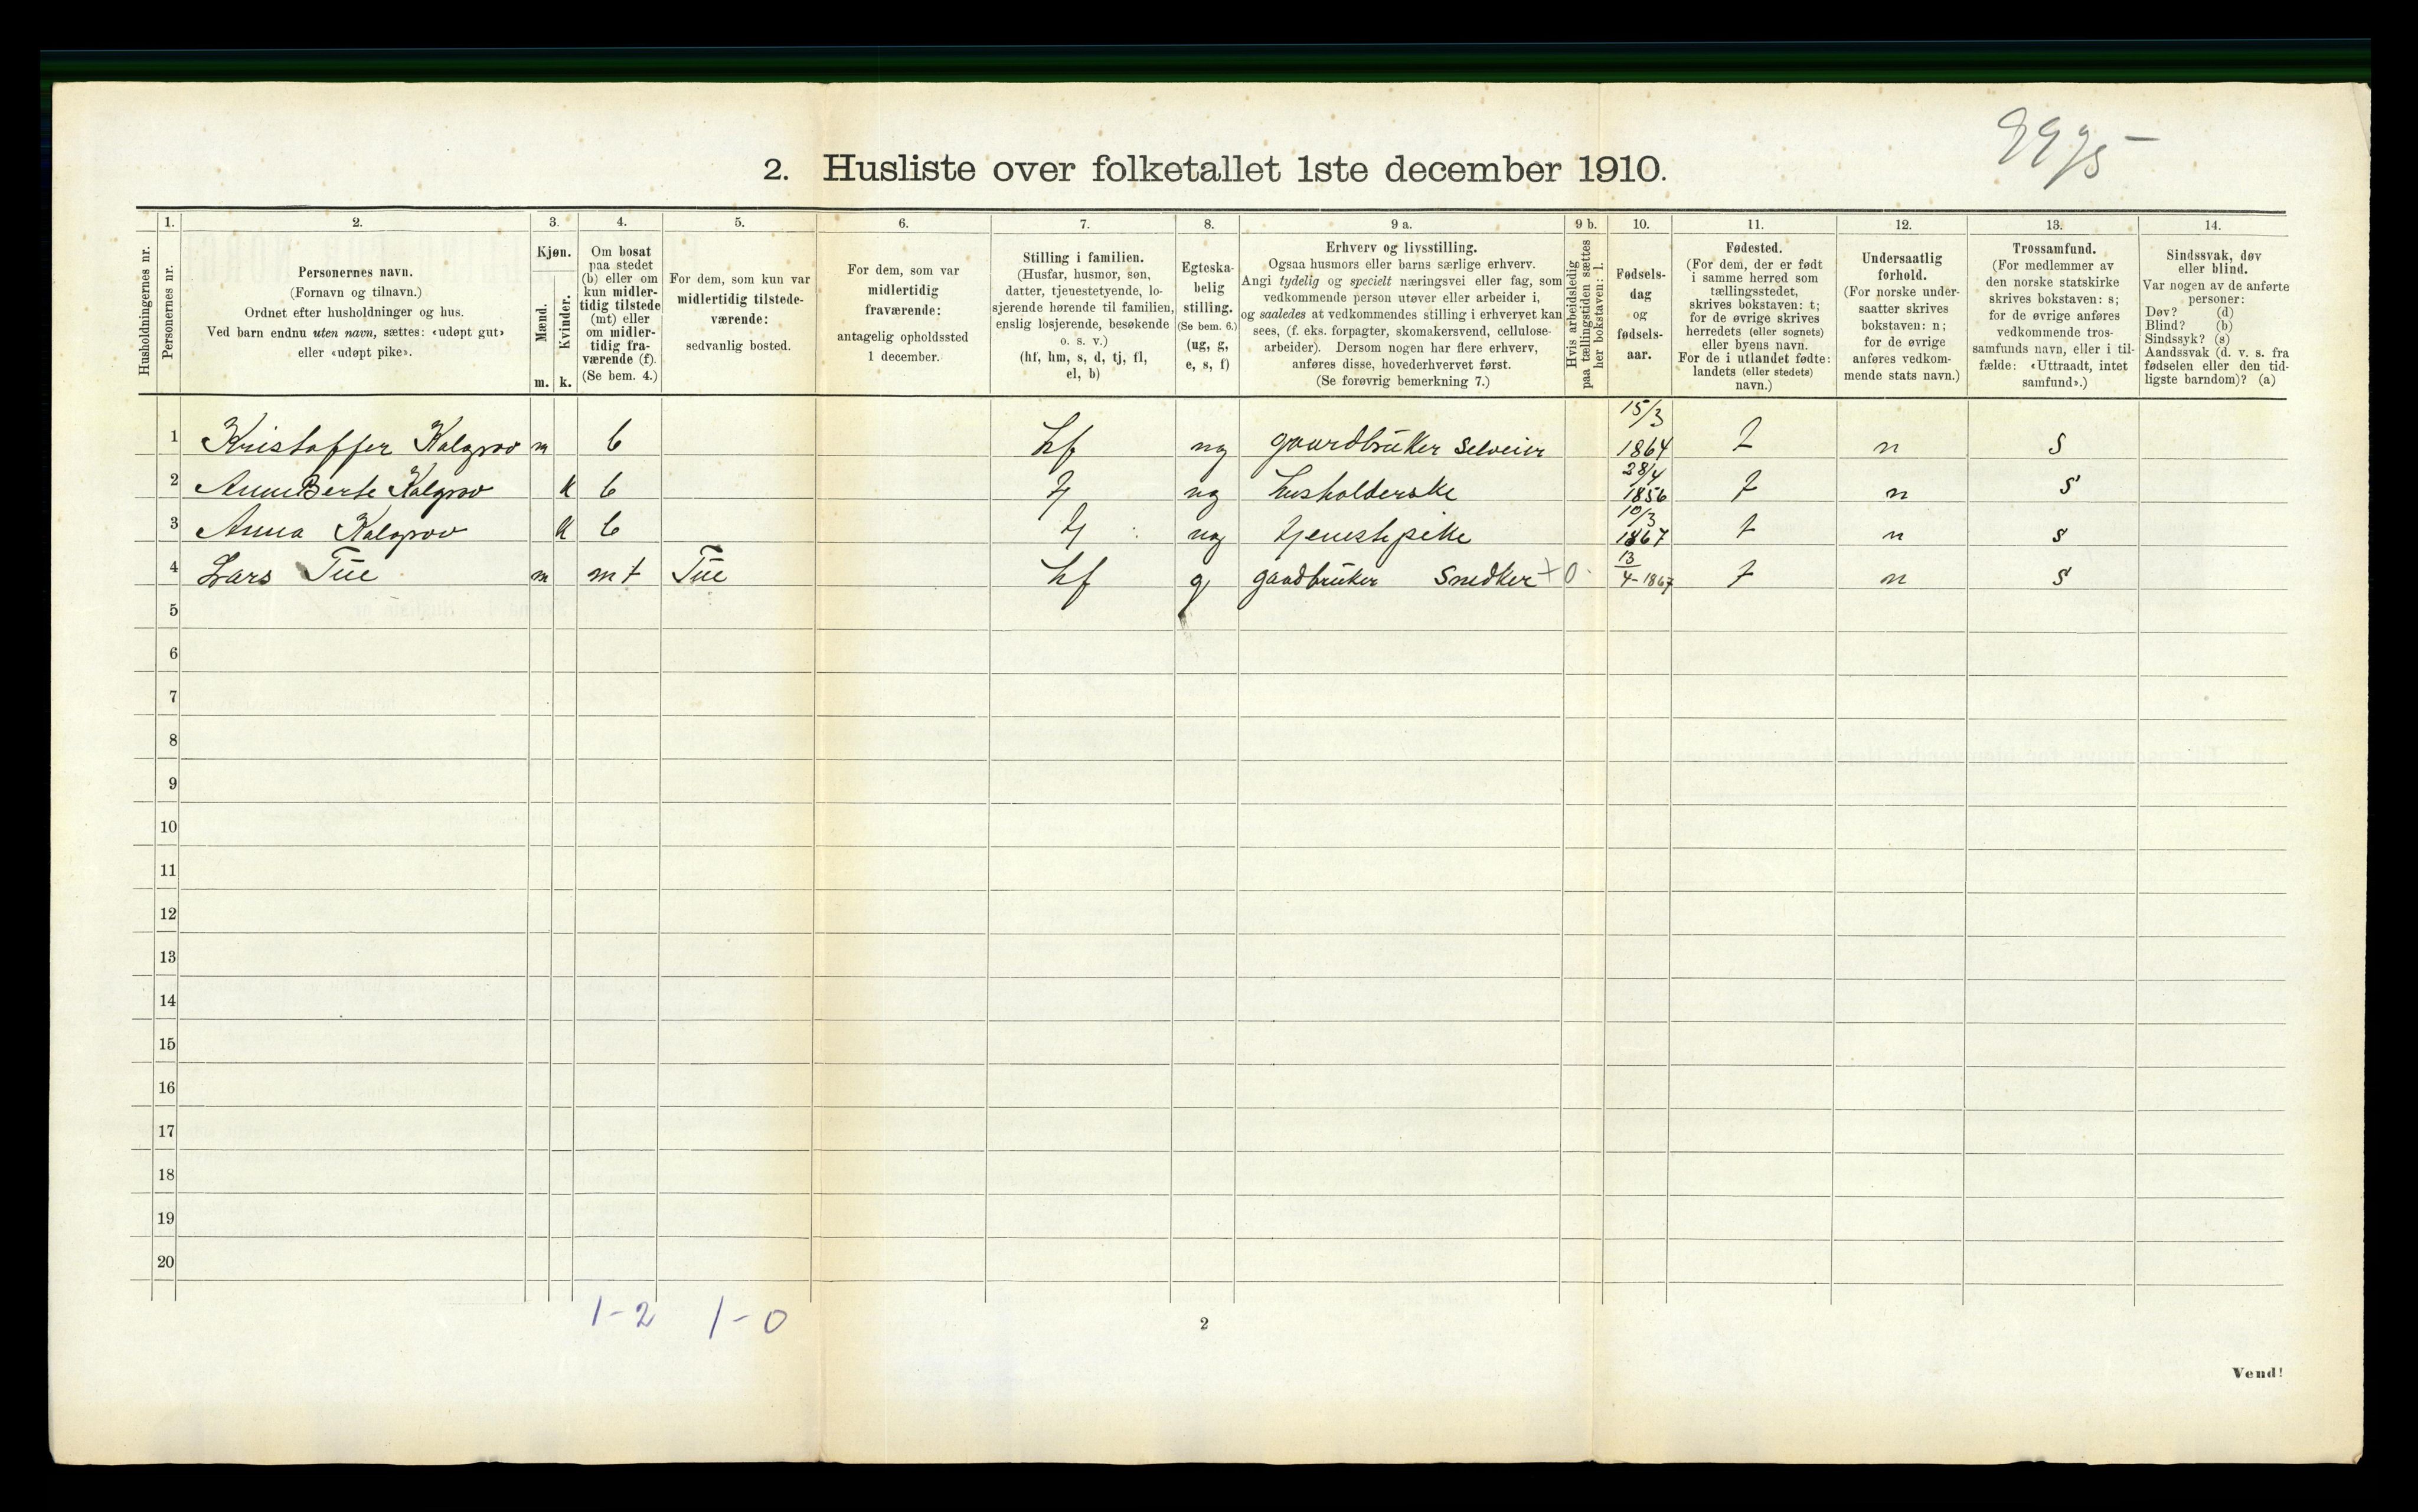 9975
2. Husliste over folketallet 1ste december 1910.
Husholdningernes nr.
1. Personernes nr.
2. Personernes navn.
(Fornavn og tilnavn.)
Ordnet efter husholdninger og hus.
Ved barn endnu uten navn, sættes: «udøpt gut»
eller «udøpt pike».
3. Kjøn.
Mænd. m.
Kvinder. k.
4. Om bosat
paa stedet
(b) eller om
kun midler-
tidig tilstede
(mt) eller
om midler-
tidig fra-
værende (f).
(Se bem. 4.)
5. For dem, som kun var
midlertidig tilstede-
værende:
sedvanlig bosted.
6. For dem, som var
midlertidig
fraværende:
antagelig opholdssted
1 december.
7. Stilling i familien.
(Husfar, husmor, søn,
datter, tjenestetyende, lo-
sjerende hørende til familien,
enslig losjerende, besøkende
o. s. v.)
(hf, hm, s, d, tj, fl,
el, b)
8. Egteska-
belig
stilling.
(Se bem. 6.)
(ug, g,
e, s, f)
9 a. Erhverv og livsstilling.
Ogsaa husmors eller barns særlige erhverv.
Angi tydelig og specielt næringsvei eller fag, som
vedkommende person utøver eller arbeider i,
og saaledes at vedkommendes stilling i erhvervet kan
sees, (f. eks. forpagter, skomakersvend, cellulose-
arbeider). Dersom nogen har flere erhverv,
anføres disse, hovederhvervet først.
(Se forøvrig bemerkning 7.)
9 b. Hvis arbeidsledig
paa tællingstiden sættes
her bokstaven: l.
10. Fødsels-
dag
og
fødsels-
aar.
11. Fødested.
(For dem, der er født
i samme herred som
tællingsstedet,
skrives bokstaven: t;
for de øvrige skrives
herredets (eller sognets)
eller byens navn.
For de i utlandet fødte:
landets (eller stedets)
navn.)
12. Undersaatlig
forhold.
(For norske under-
saatter skrives
bokstaven: n;
for de øvrige
anføres vedkom-
mende stats navn.)
13. Trossamfund.
(For medlemmer av
den norske statskirke
skrives bokstaven: s;
for de øvrige anføres
vedkommende tros-
samfunds navn, eller i til-
fælde: «Uttraadt, intet
samfund».)
14. Sindssvak, døv
eller blind.
Var nogen av de anførte
personer:
Døv? (d)
Blind? (b)
Sindssyk? (s)
Aandssvak (d. v. s. fra
fødselen eller den tid-
ligste barndom)? (a)
1 Kristoffer Kalgrov m b hf ug gaardbruker selveier 15/3 1864 t n s
2 Anne Berte Kalgrov k b tj ug husholderske 28/4 1856 t n s
3 Anna Kalgrov k b tj ug tjenestepike 10/3 1867 t n s
4 Lars Tue m mt Tue hf g gaadbruker Snedker + 0 13/4-1867 t n s
5
6
7
8
9
10
11
12
13
14
15
16
17
18
19
20
1-2 1-0
2
Vend!